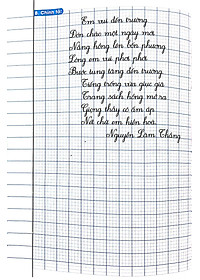 B. Chính tả:
Em vui đến trường
Đón chào một ngày mới
Nắng hồng lên bốn phương
Lòng em vui phơi phới
Bước tung tăng đến trường
Tiếng trống vừa giục giã
Trang sách hồng mở ra
Giọng thầy cô ấm áp
Nét chữ em hiền hoà.
Nguyễn Lãm Thắng